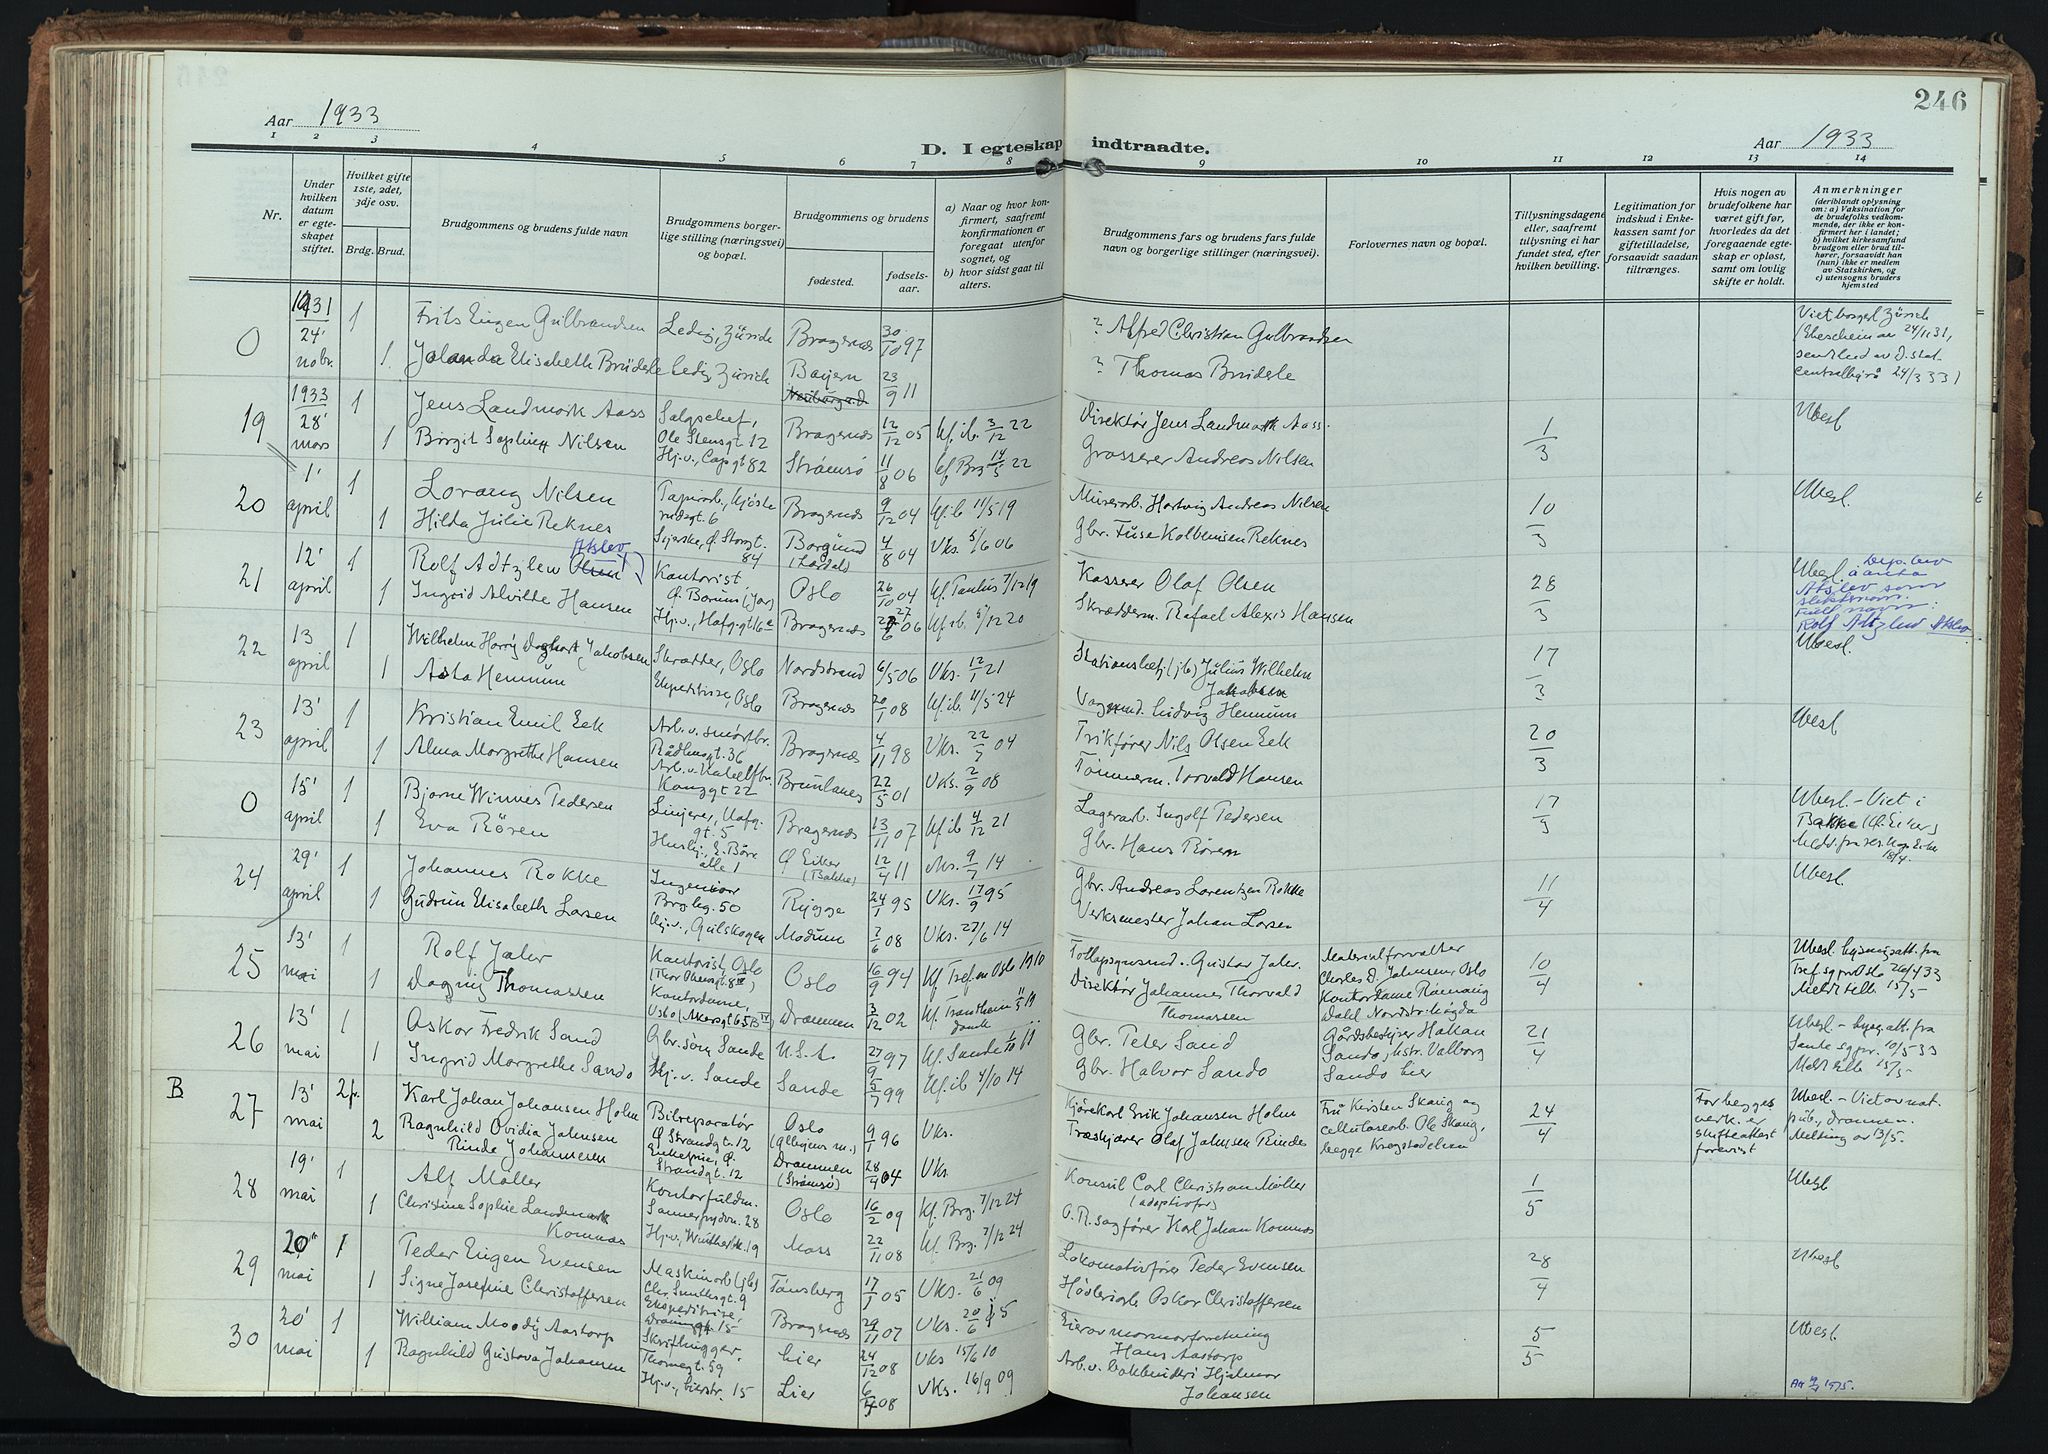 246
Aar 1933
D. I egteskap indtraadte.
Aar 1933
1 2 3 4 5 6 7 8 9 10 11 12 13 14
Nr.
Under hvilken datum er egteskapet stiftet.
Hvilket gifte 1ste, 2det, 3dje osv.
Brdg. Brud.
Brudgommens og brudens fulde navn
Brudgommens borgerlige stilling (næringsvei) og bopæl.
Brudgommens og brudens
fødested.
fødselsaar.
a) Naar og hvor konfirmert, saafremt konfirmationen er foregaat utenfor sognet, og
b) hvor sidst gaat til alters.
Brudgommens fars og brudens fars fulde navn og borgerlige stillinger (næringsvei).
Forlovernes navn og bopæl.
Tillysningsdagene eller, saafremt tillysning ei har fundet sted, efter hvilken bevilling.
Legitimation for indskud i Enkekassen samt for giftetilladelse, forsaavidt saadan tiltrænges.
Hvis nogen av brudefolkene har været gift før, hvorledes da det foregaaende egteskap er opløst, samt om lovlig skifte er holdt.
Anmerkninger (deriblandt oplysning om: a) Vaksination for de brudefolks vedkommende, der ikke er konfirmert her i landet; b) hvilket kirkesamfund brudgom eller brud tilhører, forsaavidt han (hun) ikke er medlem av Statskirken, og c) utensogns bruders hjemsted
0 1931 24' nobr. 1 Frits Eugen Gulbrandsen Ledig, Zürich Bragernes 30/10 97 ? Alfred Christian Gulbrandsen Viet borgerl. Zürich
1 Jolanda Elisabeth Brüderle Ledig Zürich Bayern 23/9 11 ? Thomas Brüderle
19 1933 28' mars 1 Jens Landmark Aass Salgschef, Ole Stensgt 12 Bragernes 12/12 05 kf. ib. 3/12 22 Direktør Jens Landmark Aass 1/3 Ubesl
1 Birgit Sophie Nilsen Hj.v., Capgt 82 Strømsø 11/8 06 kf Brg 14/5 22 Grosserer Andreas Nilsen
20 1' april 1 Lorang Nilsen Papirarb. Bragernes 9/12 04 kf. ib 11/5 19 Murerarb. Hartvig Andreas Nilsen 10/3 Ubesl.
1 Hilda Julie Reknes Syerske, Ø. Storgt. 84 Borgund (Lærdal) 4/8 04 Vks. 5/6 06 Gbr. Reknes
21 12' april 1 Rolf Adtzlew Olsen Atslev Kontorist, Ø. Bærum (Jar) Oslo 26/10 04 kf. Paulus 7/12 19 Kasserer Olaf Olsen 28/3 Ubesl.
1 Ingrid Alvilde Hansen Hj.v., Hafg.gt 16 Bragernes 06 kf. ib. 5/12 20 Skræddem. Rafael Alexis Hansen Rolf Adtzlew Atslev
22 13 april 1 Wilhelm Harry Jakobsen Skrædder, Oslo Nordstrand 6/5 06 Vks. 12/1 21 Julius Wilhelm Jakobsen 17/3 Ubesl.
1 Asta Hennum Ekspeditrise, Oslo Bragernes 20/1 08 kf. ib. 11/5 24 Vognmd. Ludvig Hennum
23 13' april 1 Kristian Emil Eek Arb. v. smørfbr. Rådhusgt. 36 Bragernes 4/11 98 Vks. 22/7 04 Nils Olsen Eek 20/3 Ubesl
1 Alma Margrethe Hansen Kongsgt 22 Brunlanes 22/5 01 Vks. 2/9 08 Tømmerm. Torvald Hansen
0 15' april 1 Bjarne Winnes Pedersen Linjerer, Hafg. gt. 5 Bragernes 13/11 07 kf. ib 4/12 21 Lagerarb. Ingolf Pedersen 17/3 Ubesl. - Viet i Bakke (Ø. Eiker)
1 Eva Røren alle 1 Ø Eiker (Bakke) 12/4 11 9/7 14 Gbr. Hans Røren
24 29' april 1 Johannes Rokke Ingeniør Brgleg. 50 Rygge 24/1 95 Vks. 17/9 95 Gbr. Andreas Lorentzen Rokke 11/4 Ubesl.
1 Gudrun Elisabeth Larsen Hj.v., Gulskogen Modum 7/6 08 Vks. 27/6 14 Verksmester Johan Larsen
25 13' mai 1 Rolf Jahr Kontorist, Oslo Oslo 16/9 94 kf Tref.en Oslo 1910 Gustav Jahr. Materialforvalter Charles D. Johansen, Oslo 10/4 Ubesl. lysningsatt. fra
1 Dagny Thomassen Kontordame, Oslo (Akersgt 65 B IV) Drammen 3/12 02 Direktør Johannes Thorvald Thomassen Kontordame Dahl Meldt telb. 15/5
26 13' mai 1 Oskar Fredrik Sand Gbr.søn, Sande U.S.A. 27/9 97 kf. Sande 1/10 11 Gbr. Peter Sand Gårdsbestyrer Håkan Sando, Valborg Sando Lier 21/4 Ubesl - lysn. att. fra Sande sgpr. 10/5 33
1 Ingrid Margrethe Sando Hj. v. Sande Sande 5/7 99 kf. ib 4/10 14 Gbr. Halvor Sando
B 27 13' mai 2 Karl Johan Johansen Holm Bilreparatør Ø Strandgt. 12 Oslo 9/1 96 Vks. Kjørekarl Erik Johansen Holm Fru Kirsten Skaug og cellulosearb. Ole Skaug, begge Krogstadelven 24/4 For begges verk. er skifteattest forevist Ubesl. - Viet av not. pub., Drammen. Melding av 13/5.
2 Ragnhild Ovidia Jahnsen Rinde Johannesen Enkefrue, Ø. Strandgt. 12 Drammen (Strømsø) 28/4 04 Vks Træskjærer Olaf Jahnsen Rindes
28 19' mai 1 Alf Møller Kontorfuldm. Oslo 16/2 09 kf. Brg. 7/12 24 Konsul Carl Christian Møller (adoptivfar) 1/5 Ubesl
1 Christine Sophie Landmark Komnæs Moss 22/11 08 kf. Brg. 7/12 24 O.R.sagfører Karl Johan Komnæs
29 20' mai 1 Peder Eugen Evensen Maskinarb (jb) Chr. Smithsgt 9 Tønsberg 17/1 05 Vks. 21/6 09 Lokomotivfører Peder Evensen 28/4 Ubesl
1 Signe Josefine Christoffersen Ekspeditrise, 15 Bragernes 29/11 07 Vks. 20/6 15 Oskar Christoffersen
30 20' mai 1 William Moody Aastorp Skrifthugger, Thornegt. 59 Lier 24/12 08 Vks 15/6 10 Eier av marmorforretning Hans Aastorp 5/5 Ubesl.
1 Ragnhild Gustava Johansen Hj.v., Lierstr. 15 Lier 08 Vks. 16/9 09 Arb. v. Hjalmar Johansen 1975.